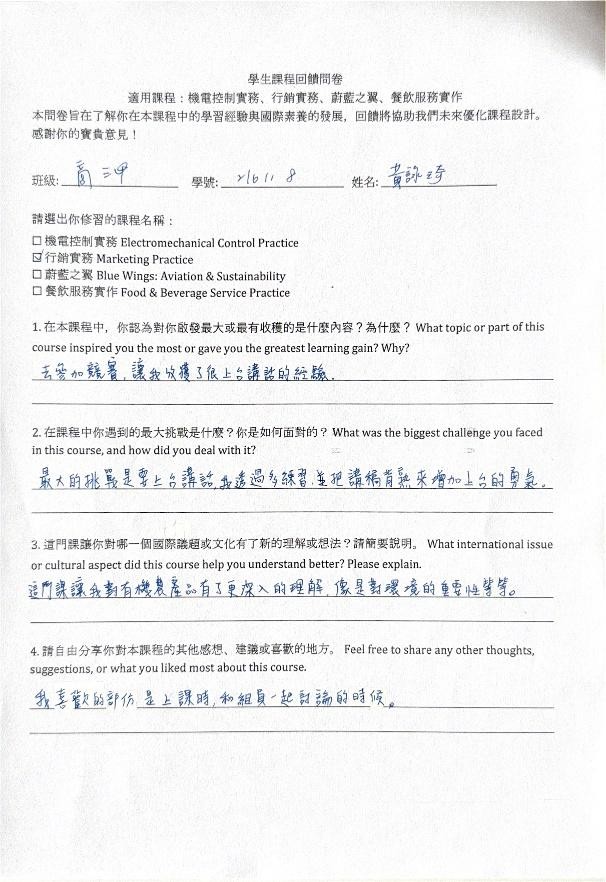 學生課程回饋問卷
適用課程：機電控制實務、行銷實務、蔚藍之翼、餐飲服務實作
本問卷旨在了解你在本課程中的學習經驗與國際素養的發展，回饋將協助我們未來優化課程設計。
感謝你的寶貴意見！
班級: 商三甲 學號: 216118 姓名: 黃詠琦
請選出你修習的課程名稱：
☐ 機電控制實務 Electromechanical Control Practice
☑ 行銷實務 Marketing Practice
☐ 蔚藍之翼 Blue Wings: Aviation & Sustainability
☐ 餐飲服務實作 Food & Beverage Service Practice
1. 在本課程中，你認為對你啟發最大或最有收穫的是什麼內容？為什麼？ What topic or part of this
course inspired you the most or gave you the greatest learning gain? Why?
去參加競賽，讓我收穫了很上台講話的經驗．
2. 在課程中你遇到的最大挑戰是什麼？你是如何面對的？ What was the biggest challenge you faced
in this course, and how did you deal with it?
最大的挑戰是要上台講話，我透過多練習，並把講稿背熟來增加上台的勇氣。
3. 這門課讓你對哪一個國際議題或文化有了新的理解或想法？請簡要說明。 What international issue
or cultural aspect did this course help you understand better? Please explain.
這門課讓我對有機農產品有了更深入的理解，像是對環境的重要性等等。
4. 請自由分享你對本課程的其他感想、建議或喜歡的地方。 Feel free to share any other thoughts,
suggestions, or what you liked most about this course.
我喜歡的部份是上課時，和組員一起討論的時候。